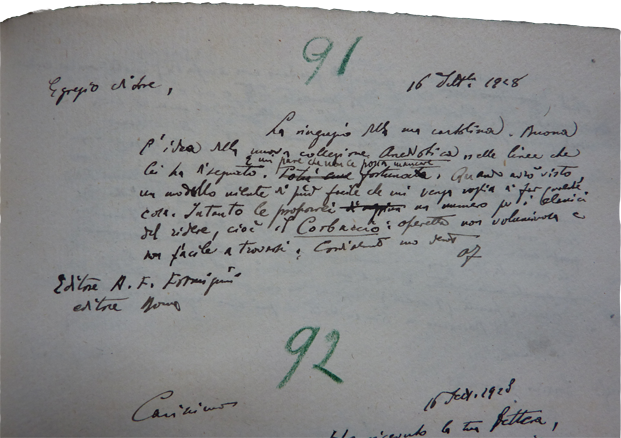 91
Egregio editore, 16 Sett. 1928
La ringrazio della sua cartolina. Buona
l'idea della nuova collezione Aneddotica nelle linee che
E mi pare che non le possa mancare
lei ha disegnato. fortuna. Quando avrò visto
un modello niente di più facile che mi venga voglia di far qualche
cosa. Intanto le proporrei un numero per i Classici
del ridere, cioè il Corbaccio: operetta non voluminosa e
non facile a trovarsi. Cordialmente suo
Editore A. F. Formiggini
editore Roma
92
Carissimo 16 Sett. 1928
la tua lettera,